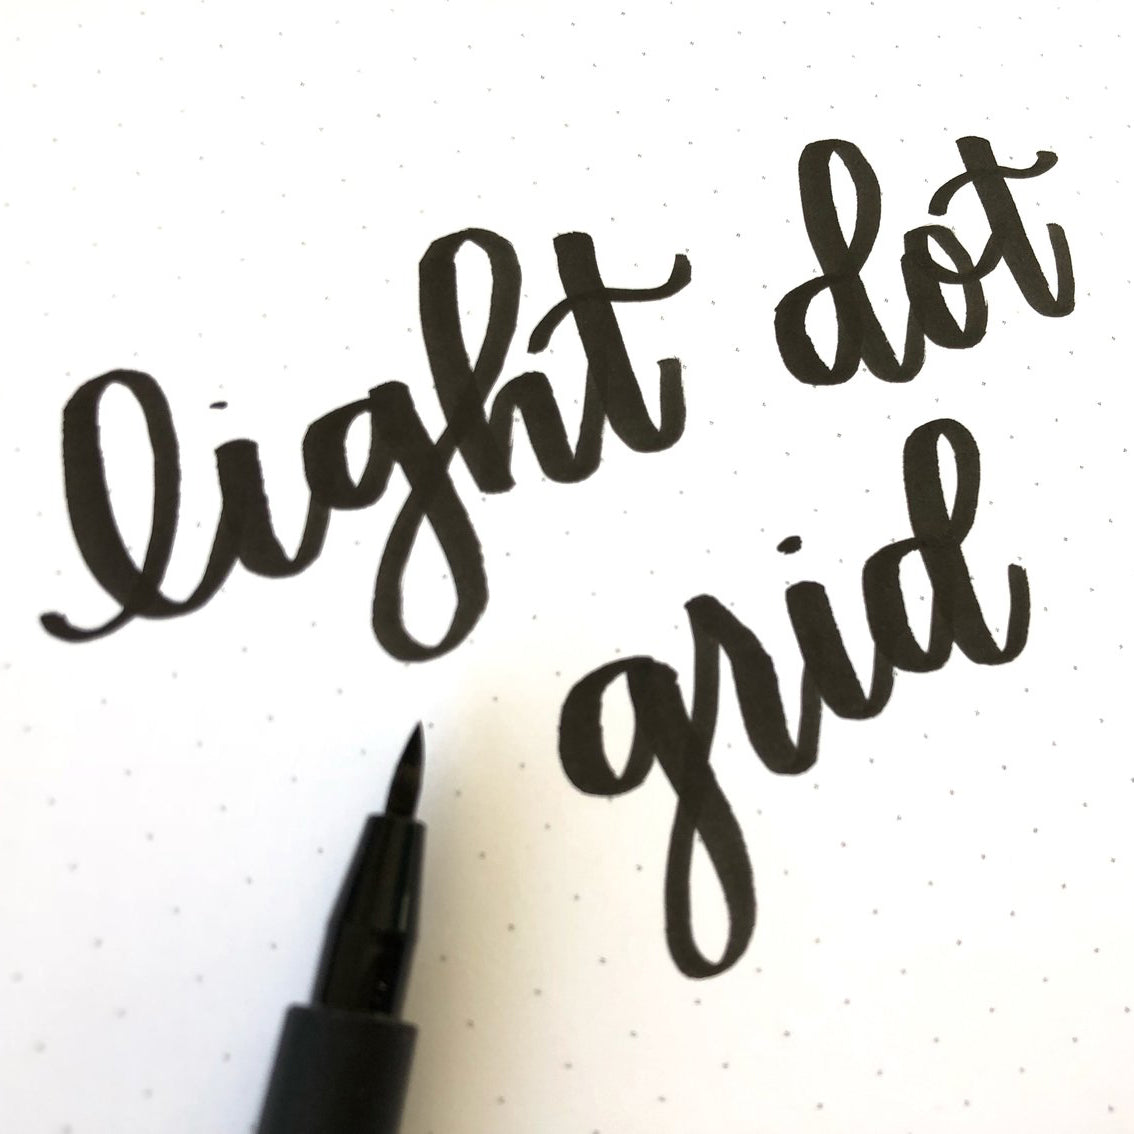 light dot
grid